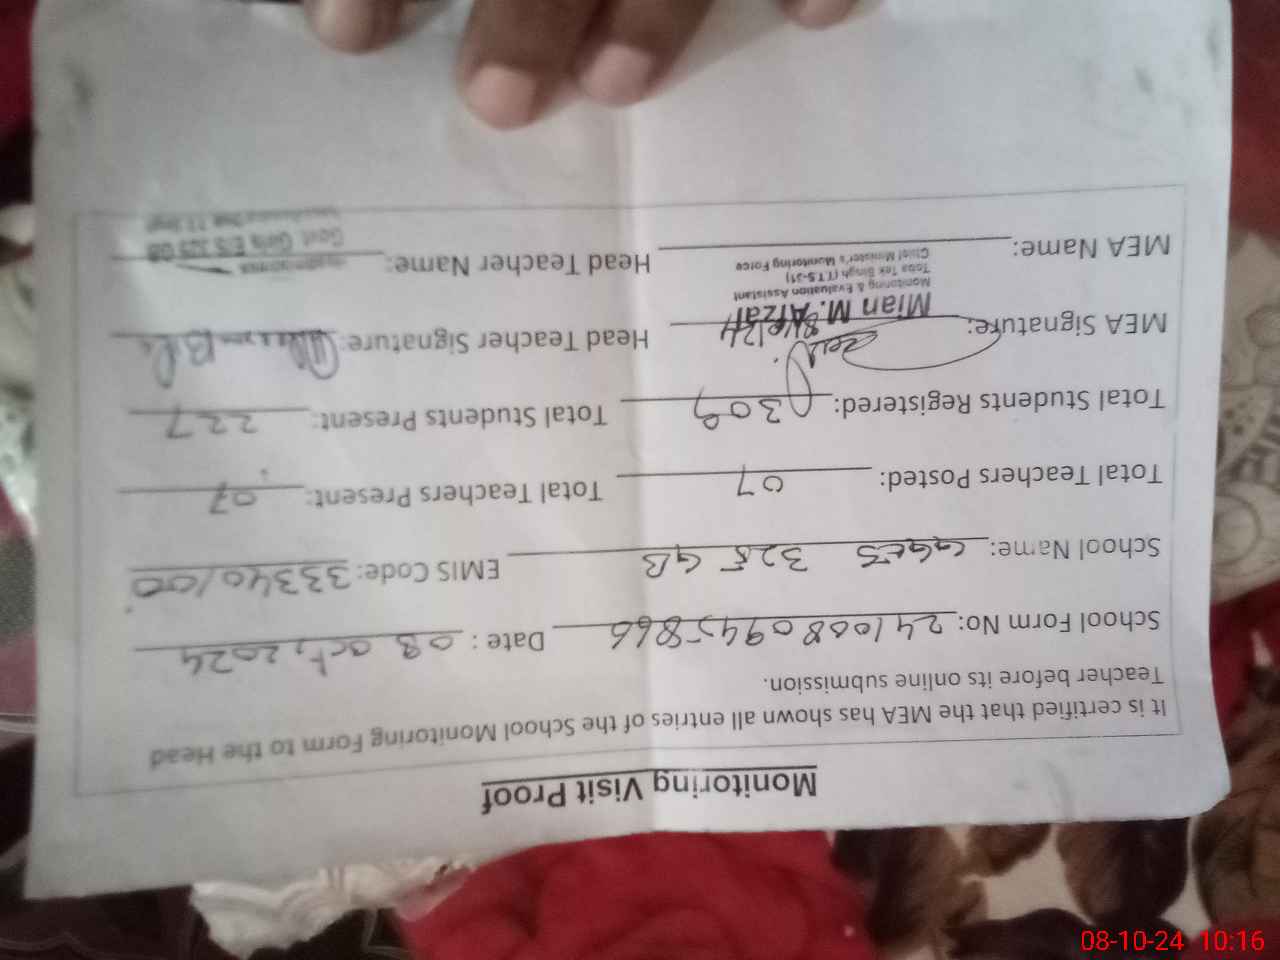 Monitoring Visit Proof
It is certified that the MEA has shown all entries of the School Monitoring Form to the Head
Teacher before its online submission.
School Form No: 2410080945866 Date : 08 oct, 2024
School Name: GGES 325 GB EMIS Code: 33340100
Total Teachers Posted: 07 Total Teachers Present: 07
Total Students Registered: 309 Total Students Present: 227
MEA Signature: Head Teacher Signature:
8/10/24
Mian M. Afzal
Monitoring & Evaluation Assistant
Toba Tek Singh (T.T.S-31)
Chief Minister's Monitoring Force
MEA Name: Head Teacher Name:
Govt. Girls E/S 325 GB
08-10-24 10:16